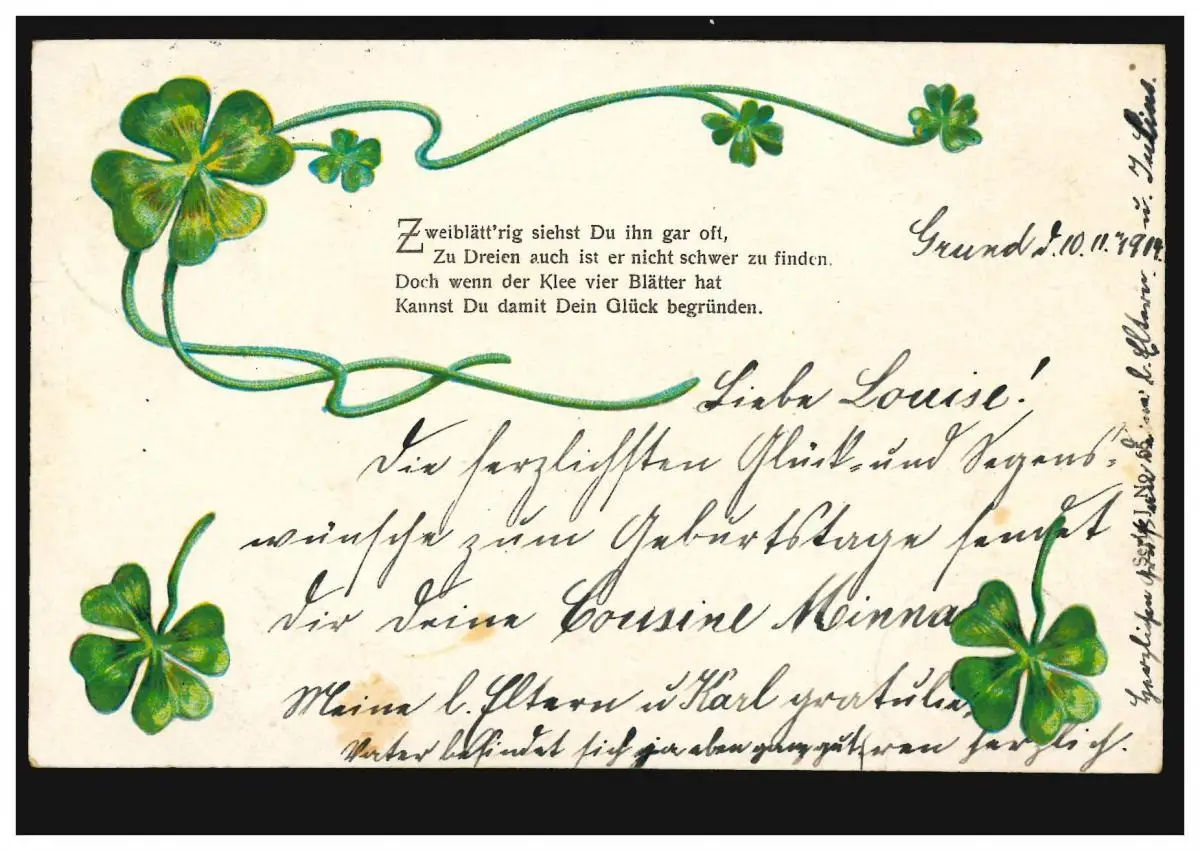 Zweiblätt'rig siehst Du ihn gar oft,
Zu Dreien auch ist er nicht schwer zu finden.
Doch wenn der Klee vier Blätter hat
Kannst Du damit Dein Glück begründen.
Grund d. 10. 11. 1914.
Liebe Louise!
Die herzlichsten Glück- und Segens-
wünsche zum Geburtstage sendet
dir deine Cousine Minna
Meine l. Eltern u Karl gratulie
ren herzlich.
Vater befindet sich ja eben ganz gut
Herzlichen l. Eltern u. Julius.